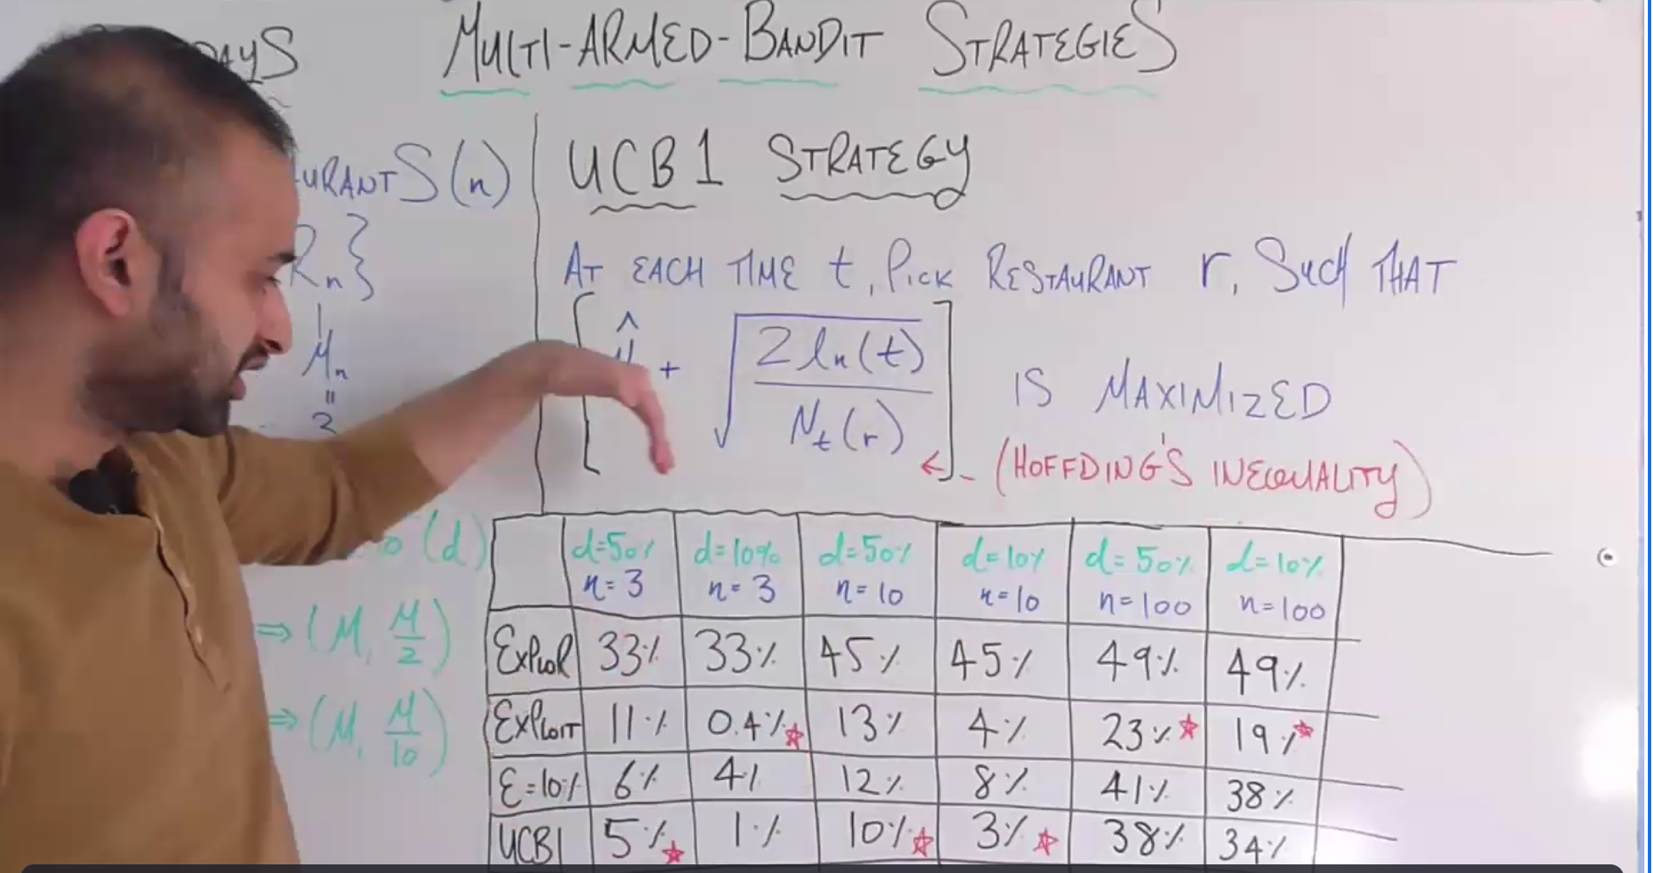 MULTI-ARMED-BANDIT STRATEGIES
AYS
URANTS (n)
Rn}
Mn
"
2
(d)
⇒ (M, M/2)
⇒ (M, M/10)
UCB1 STRATEGY
AT EACH TIME t, PICK RESTAURANT r, SUCH THAT
[ û + √(2 ln(t) / Nt(r)) ] IS MAXIMIZED
← (HOFFDING'S INEQUALITY)
d=50% d=10% d=50% d=10% d=50% d=10%
n=3 n=3 n=10 n=10 n=100 n=100
EXPLOR 33% 33% 45% 45% 49% 49%
EXPLOIT 11% 0.4%☆ 13% 4% 23%★ 19%★
ε=10% 6% 4% 12% 8% 41% 38%
UCB1 5%★ 1% 10%☆ 3%☆ 38% 34%